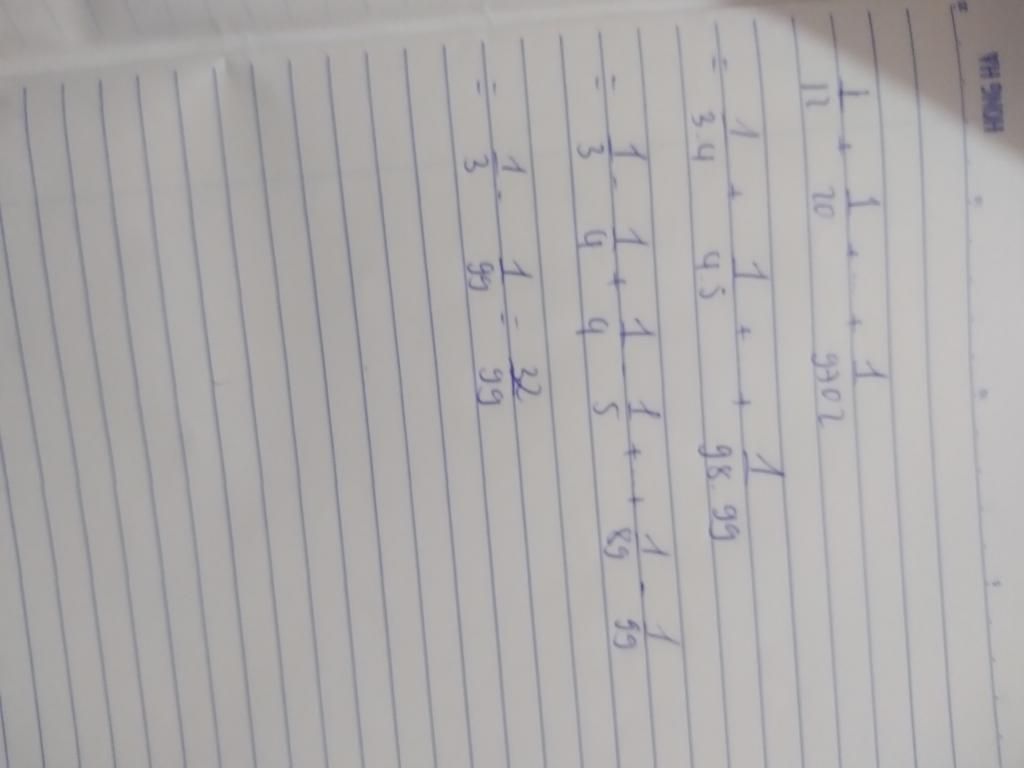 HONG HA
1/12 + 1/20 + ... + 1/9702
= 1/3.4 + 1/4.5 + + 1/98.99
= 1/3 - 1/4 + 1/4 - 1/5 + + 1/89 - 1/99
= 1/3 - 1/99 = 32/99